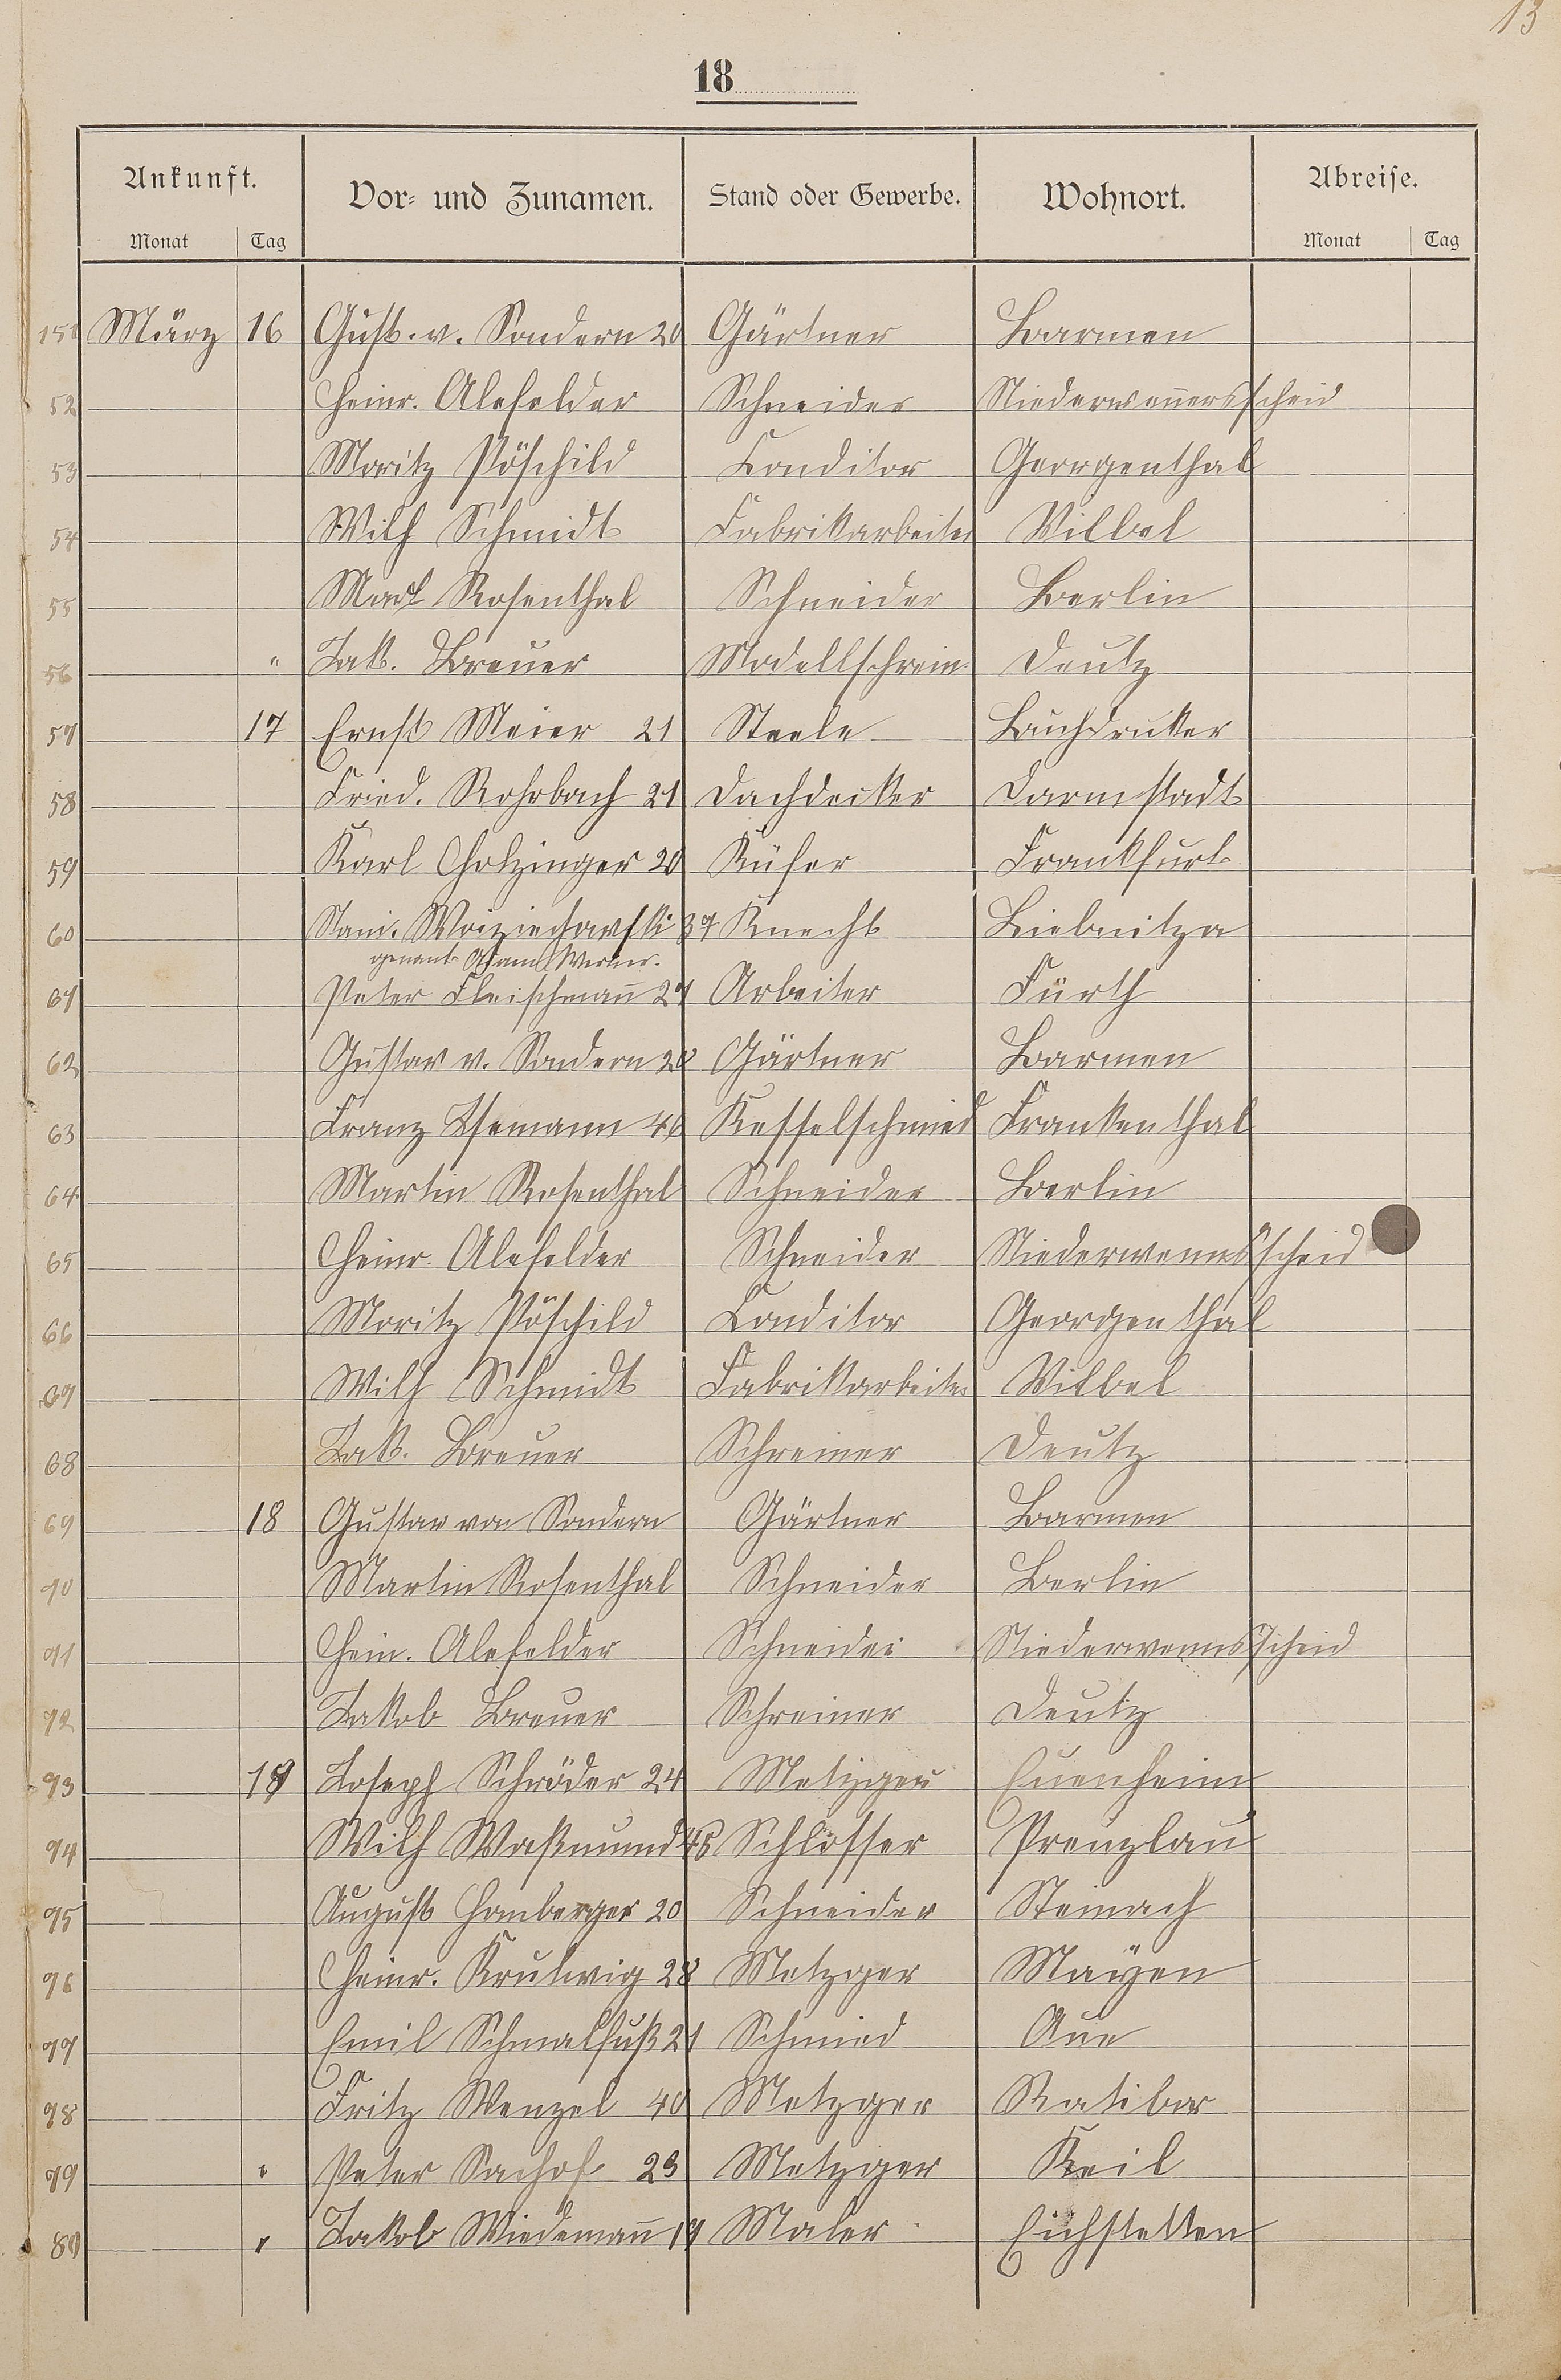 13
18
Ankunft. Vor- und Zunamen. Stand oder Gewerbe. Wohnort. Abreise.
Monat Tag Monat Tag
151 März 16 Gust. v. Sondern 20 Gärtner Barmen
52 Heinr. Alefelder Schneider Niederwen̄ersscheid
53 Moritz Pöschild Conditor Georgenthal
54 Wilh Schmidt Fabrikarbeiter Vilbel
55 Mart Rosenthal Schneider Berlin
56 " Jak. Breuer Modellschrein. Deutz
57 17 Ernst Meier 21 Steele Buchdruker
58 Fried. Rohrbach 21 Dachdecker Darmstadt
59 Karl Holzinger 20 Küfer Frankfurt
60 Stani. Woiziechowski 37 Knecht Liebnitza
genant Adam Werner.
61 Peter Fleischman̄ 27 Arbeiter Fürth
62 Gustav v. Sondern 20 Gärtner Barmen
63 Franz 46 Kesselschmied Frankenthal
64 Martin Rosenthal Schneider Berlin
65 Heinr. Alefelder Schneider Niederwennersscheid
66 Moritz Pöschild Conditor Georgenthal
67 Wilh Schmidt Fabrikarbeiter Vilbel
68 Jak. Breuer Schreiner Deutz
69 18 Gustav von Sondern Gärtner Barmen
70 Martin Rosenthal Schneider Berlin
71 Hein. Alefelder Schneider Niederwennersscheid
72 Jakob Breuer Schreiner Deutz
73 19 Joseph Schröder 24 Metzger Euenheim
74 Wilh Waßmund 48 Schlosser Prenzlau
75 August Homberger 20 Schneider Steinach
76 Heinr. Krutwig 28 Metzger Mayen
77 Emil Schmalfuß 21 Schmied Aue
78 Fritz Wenzel 40 Metzger Ratibor
79 " Peter Sachof 23 Metzger Keil
80 " Jakob Wiedeman̄ 19 Maler Eichstetten